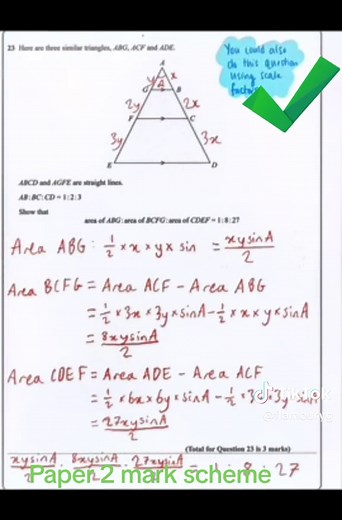 23 Here are three similar triangles, ABG, ACF and ADE.
You could also
do this question
using scale
factors
A
y A x
G B
2y 2x
F C
3y 3x
E D
ABCD and AGFE are straight lines.
AB:BC:CD = 1:2:3
Show that
area of ABG: area of BCFG: area of CDEF = 1:8:27
Area ABG: ½ × x × y × sin = xysinA/2
Area BCFG = Area ACF - Area ABG
= ½ × 3x × 3y × sinA - ½ × x × y × sinA
= 8xysinA/2
Area CDEF = Area ADE - Area ACF
= ½ × 6x × 6y × sinA - ½ × 3x × 3y sinA
= 27xysinA/2
(Total for Question 23 is 3 marks)
xysinA/2 : 8xysinA/2 : 27xysinA/2 = 1 : 8 : 27
Paper 2 mark scheme